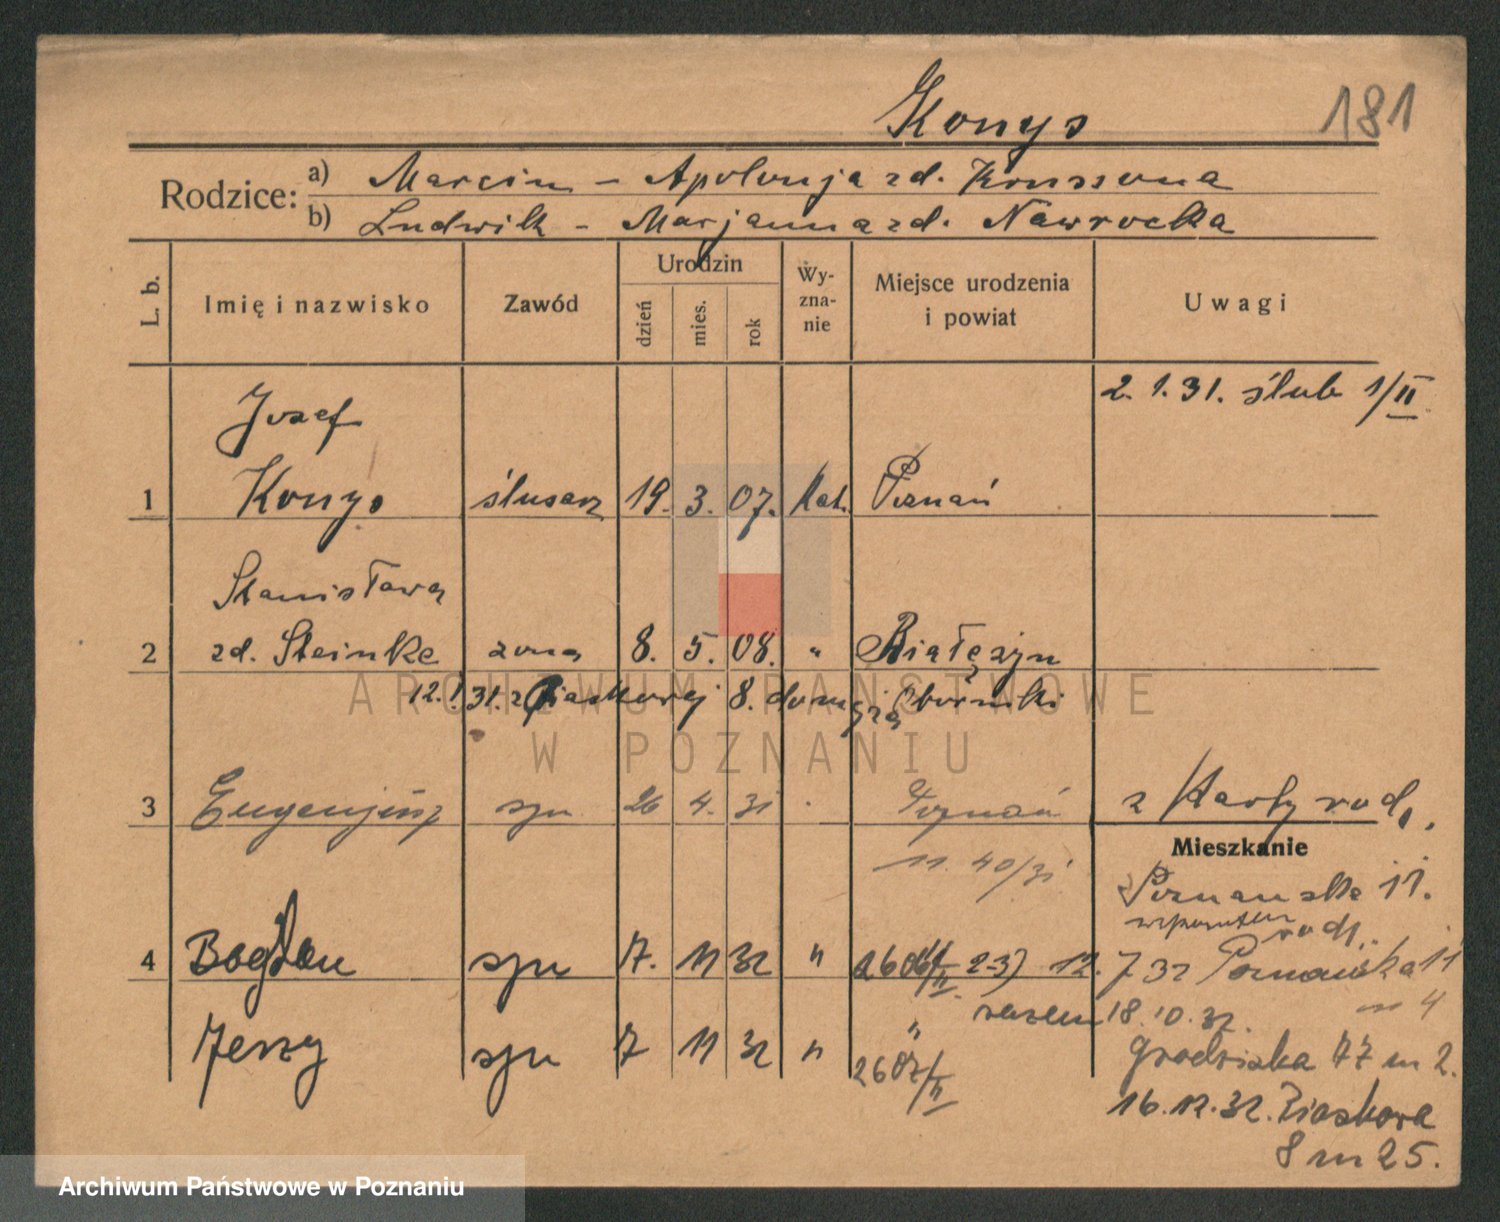 Konys 181
Rodzice: a) Marcin - Apolonja zd. Krussona
b) Ludwik - Marjanna zd. Nawrocka
L. b. Imię i nazwisko Zawód Urodzin dzień mies. rok Wy-zna-nie Miejsce urodzenia i powiat Uwagi
2. 1. 31. ślub 1/II
Jozef
1 Konys ślusarz 19. 3. 07. Kat. Poznań
Stanisława
2 zd. Steinke żona 8. 5. 08. " Białężyn
12.1.31. z Piaskowej 8. dom Oborniki
3 Eugenjusz syn 26 4. 31 Poznań z Karty rodz.
11. 40/31
Mieszkanie
Poznańska 11.
rodz.
4 Bogdan syn 7. 11 32 " 12. 7 32 Poznańska 11
razem 18. 10. 32. m 4
Jerzy syn 7 11 32 " " Grodziska 77 m 2.
2607/II
16. 12. 32. Piaskowa
8 m 25.
ARCHIWUM PAŃSTWOWE
W POZNANIU
Archiwum Państwowe w Poznaniu